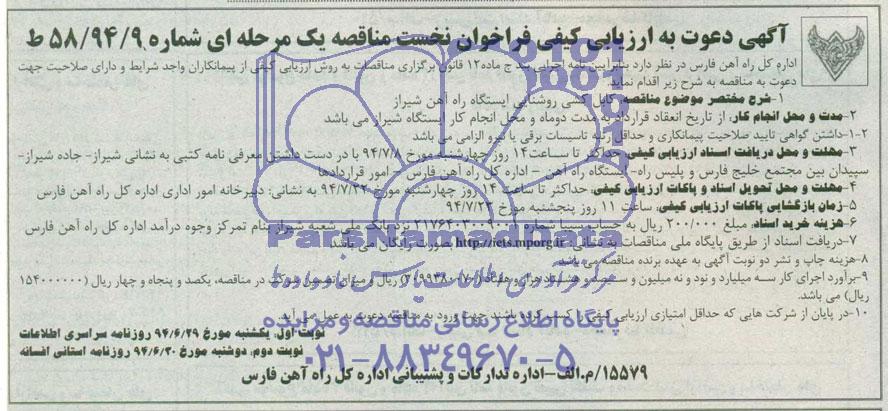 آگهی دعوت به ارزیابی کیفی فراخوان نخست مناقصه یک مرحله ای شماره ۵۸/۹۴/۹ ط
اداره کل راه آهن فارس در نظر دارد بنابر آیین نامه اجرایی بند ج ماده ۱۲ قانون برگزاری مناقصات به روش ارزیابی کیفی از پیمانکاران واجد شرایط و دارای صلاحیت جهت
دعوت به مناقصه به شرح زیر اقدام نماید.
۱-شرح مختصر موضوع مناقصه: کابل کشی روشنایی ایستگاه راه آهن شیراز
۲-مدت و محل انجام کار: از تاریخ انعقاد قرارداد به مدت دوماه و محل انجام کار ایستگاه شیراز می باشد
۱-۲-داشتن گواهی تایید صلاحیت پیمانکاری و حداقل رتبه تاسیسات برقی یا نیرو الزامی می باشد
۳-مهلت و محل دریافت اسناد ارزیابی کیفی: حداکثر تا ساعت ۱۴ روز چهارشنبه مورخ ۹۴/۷/۸ با در دست داشتن معرفی نامه کتبی به نشانی شیراز- جاده شیراز-
سپیدان بین مجتمع خلیج فارس و پلیس راه- ایستگاه راه آهن - اداره کل راه آهن فارس - امور قراردادها
۴-مهلت و محل تحویل اسناد و پاکات ارزیابی کیفی: حداکثر تا ساعت ۱۴ روز چهارشنبه مورخ ۹۴/۷/۲۲ به نشانی: دبیرخانه امور اداری اداره کل راه آهن فارس
۵-زمان بازگشایی پاکات ارزیابی کیفی: ساعت ۱۱ روز پنجشنبه مورخ ۹۴/۷/۲۳
۶-هزینه خرید اسناد: مبلغ ۲۰۰/۰۰۰ ریال به حساب سیبا شماره نزد بانک ملی شعبه شیراز بنام تمرکز وجوه درآمد اداره کل راه آهن فارس
۷-دریافت اسناد از طریق پایگاه ملی مناقصات به نشانی http://iets.mporg.ir بصورت رایگان می باشد
۸-هزینه چاپ و نشر دو نوبت آگهی به عهده برنده مناقصه می باشد
۹-برآورد اجرای کار سه میلیارد و نود و نه میلیون و سیصد و هشتاد هزار و هفتاد ریال و میزان تضمین شرکت در مناقصه، یکصد و پنجاه و چهار ریال (۱۵۴۰۰۰۰۰۰
ریال) می باشد.
۱۰-در پایان از شرکت هایی که حداقل امتیازی ارزیابی کیفی را کسب کرده باشند جهت ورود به مناقصه دعوت به عمل می آید.
نوبت اول: یکشنبه مورخ ۹۴/۶/۲۹ روزنامه سراسری اطلاعات
نوبت دوم: دوشنبه مورخ ۹۴/۶/۳۰ روزنامه استانی افسانه
۱۵۵۷۹/م.الف-اداره تدارکات و پشتیبانی اداره کل راه آهن فارس
ParsNamadData
پایگاه اطلاع رسانی مناقصه و مزایده
۰۲۱-۸۸۳۴۹۶۷۰-۵